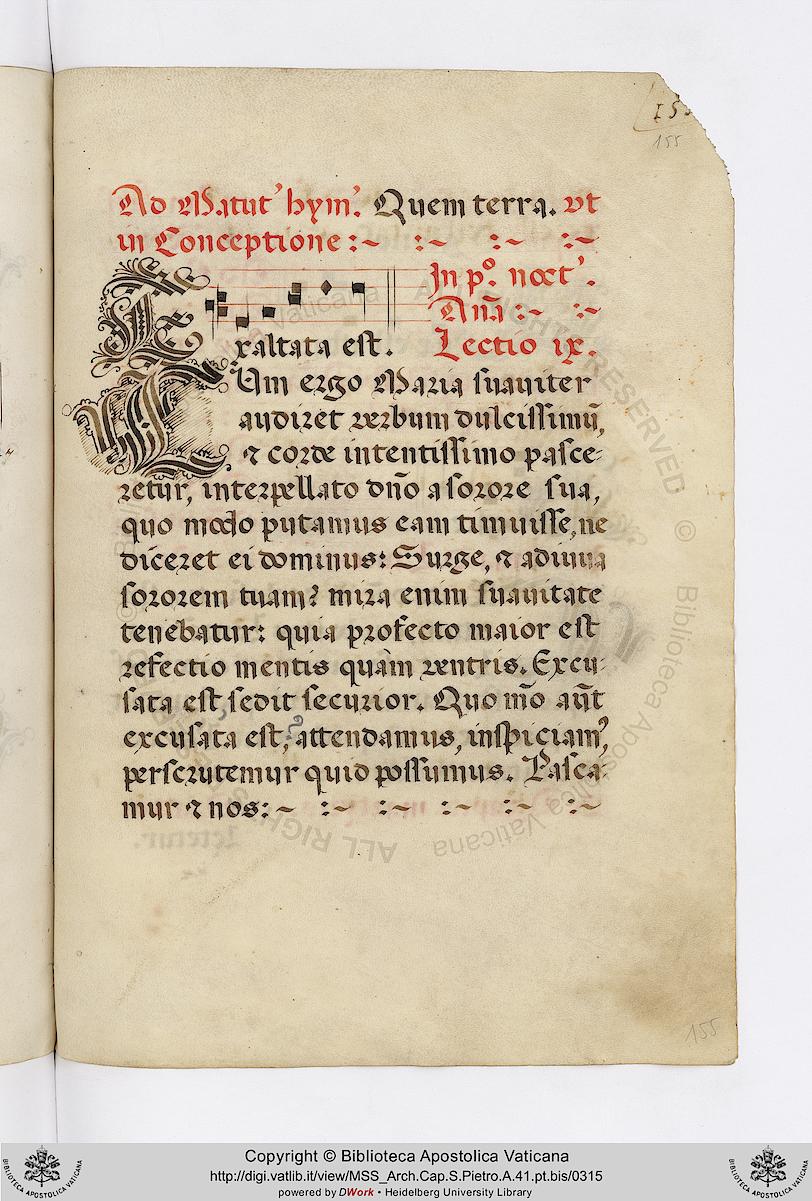 155
155
Ad Matut' hym'. Quem terra. vt
in Conceptione :~ :~ :~ :~
In p°. noct'.
Añā :~ :~
Exaltata est. Lectio ix.
Cum ergo Maria suauiter
audiret verbum dulcissimū,
⁊ corde intentissimo pasce-
retur, interpellato dño a sorore sua,
quo modo putamus eam timuisse, ne
diceret ei dominus: Surge, ⁊ adiuua
sororem tuam? mira enim suauitate
tenebatur: quia profecto maior est
refectio mentis quàm ventris. Excu-
sata est, sedit securior. Quo mō aūt
excusata est, attendamus, inspiciam',
perscrutemur quid possumus. Pasca-
mur ⁊ nos: ~ :~ :~ :~ :~ :~
155
Copyright © Biblioteca Apostolica Vaticana
http://digi.vatlib.it/view/MSS_Arch.Cap.S.Pietro.A.41.pt.bis/0315
powered by DWork • Heidelberg University Library